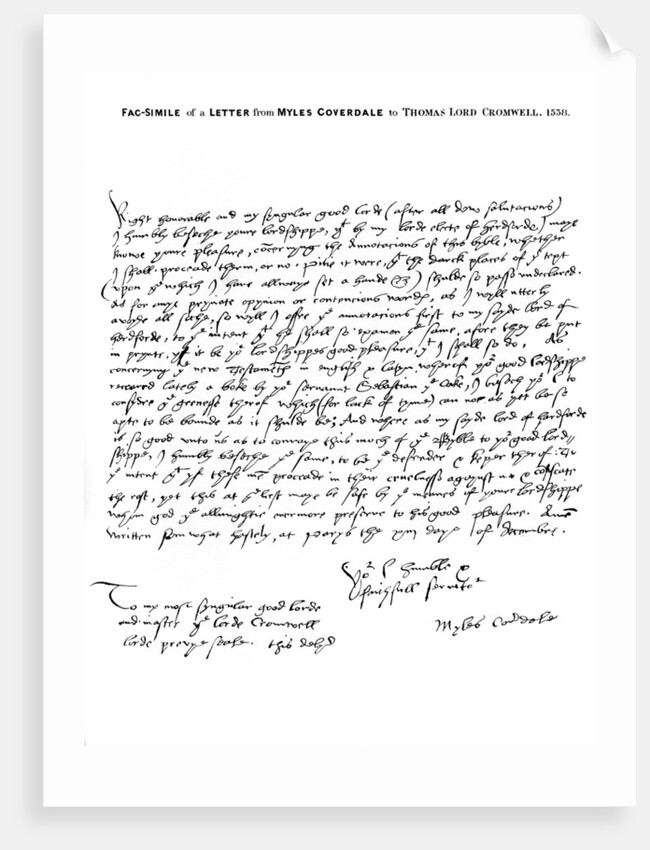 FAC-SIMILE of a LETTER from MYLES COVERDALE to THOMAS LORD CROMWELL. 1538.
Right honorable and my syngular good lorde (after all dew salutacions)
I humbly beseche youre lordshippe, yt by my lorde electe of herdforde, I maye
knowe youre pleasure, cōcernyng the Annotacions of this byble, whether
I shall proceade therin, or no. Pitie it were, yt the darck places of ye text
(vpon ye which I have allwaye set a hande) shulde so passe vndeclared.
As for eny pryuate opynion or contencious wordes, as I wyll vtterly
avoyde all soche, so wyll I offre ye annotacions first to my sayde lord of
herdforde, to ye intent yt he shall so examen ye same, afore they be put
in prynte, yf it be yor lordshippes good pleasure, yt I shall so do. As
concernyng ye new Testamēt in english & latyn, wherof yor good lordshippe
receaved lately a boke by yor servaunt Sebastian ye Cooke, I besech yor l. to
considre ye grenesse therof which (for lack of tyme) can not as yet be so
apte to be bounde as it shulde be; And where as my sayde lord of herdforde
is so good vnto us as to convaye this moch of ye Byble to yor good lord
shippe, I humbly beseche ye same, to be ye defender & keper therof: To
ye intent yt yf these mē proceade in their cruelnesse agaynst us & cōfiscate
the rest, yet this at ye lest maye be safe by ye meanes of youre lordshippe
whom god ye allmightie evermore preserve to his good pleasure. Amē
written somwhat hastely, at Parys the xiij daye of decembre.
Yor l. humble &
faithfull servitor
Myles Cov'dale
To my most syngular good lorde
and master ye lorde Cromwell
lorde prevye seale. this delyv